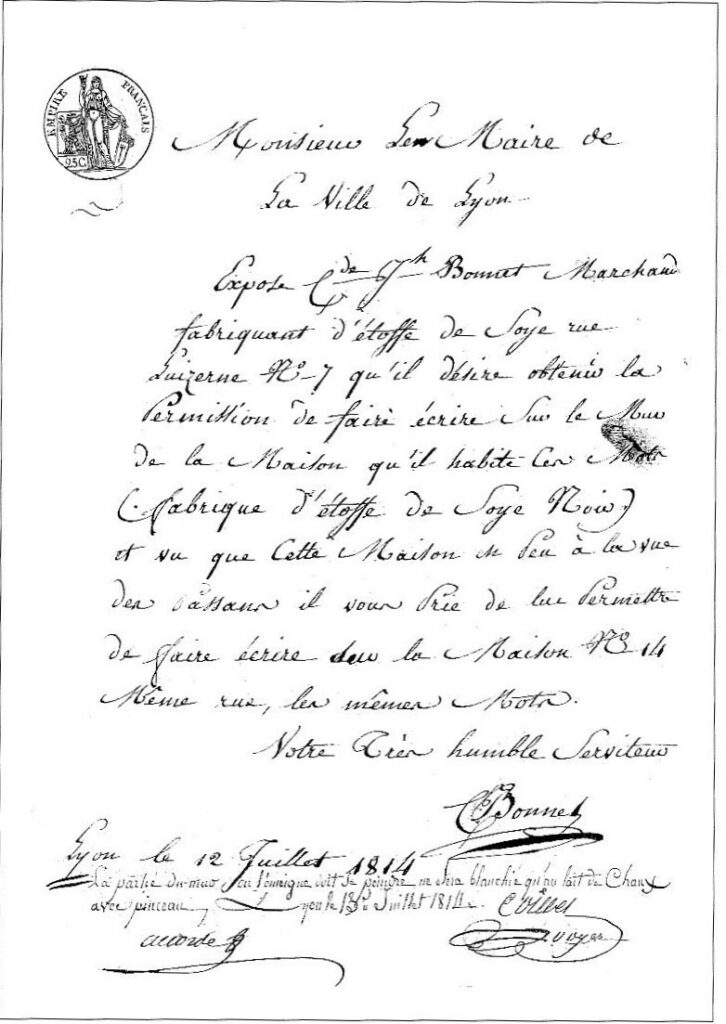 EMPIRE FRANCAIS
25C
Monsieur Le Maire de
La Ville de Lyon
Expose Cde Jh Bonnet Marchand
fabriquant d'étoffe de Soye rue
Luizerne No 7 qu'il désire obtenir la
Permission de faire écrire Sur le Mur
de la Maison qu'il habite Ces Mots
(fabrique d'étoffe de Soye Noir)
et vu que Cette Maison est Peu à la vue
des Passans il vous Prie de lui Permettre
de faire écrire sur la Maison No 14
Même rue, les mêmes Mots.
Votre Très humble Serviteur
C Bonnet
Lyon le 12 Juillet 1814
La partie du mur ou l'enseigne doit se peindre ne sera blanchie qu'au lait de Chaux
avec pinceau Lyon le Juillet 1814.
accordé
voyer